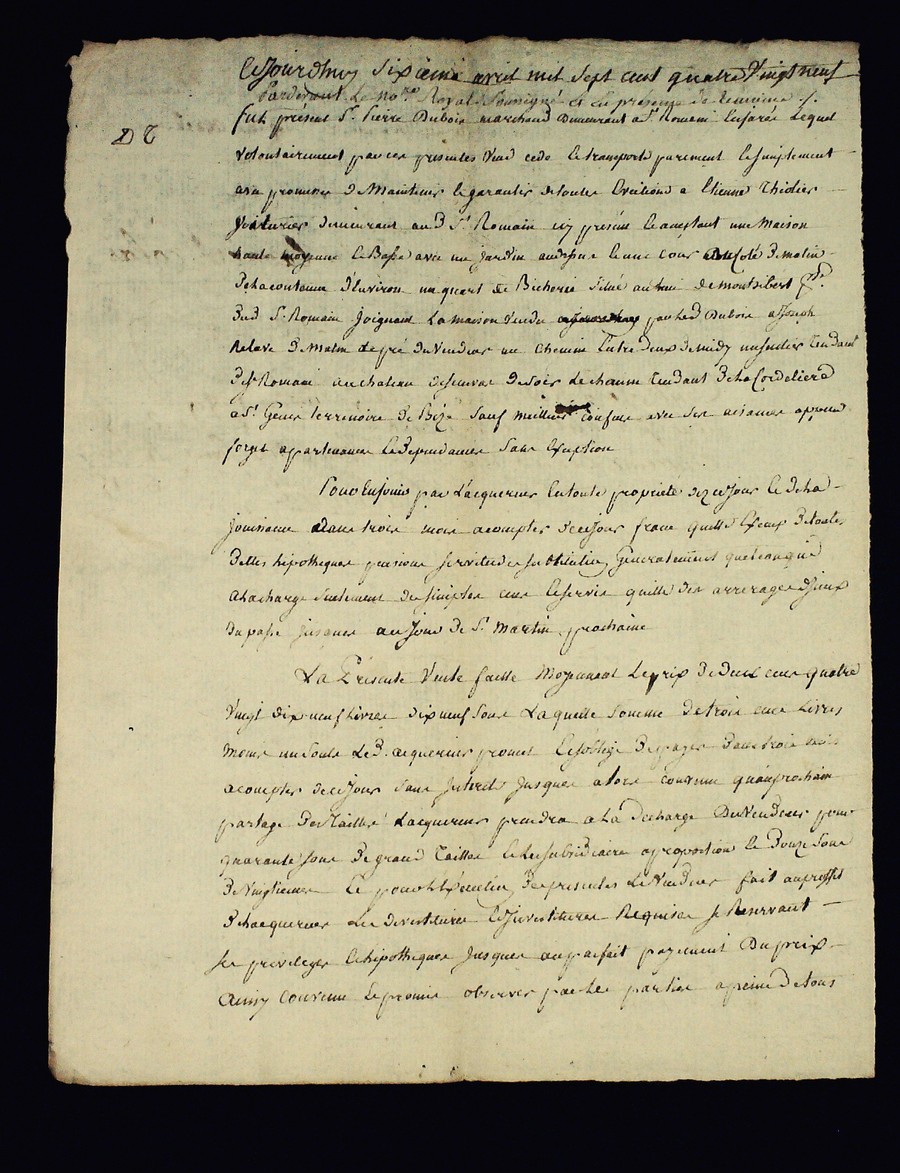 Cejourdhuy sixieme avril mil sept cent quatre Vingt neuf
Pardevant Le no.re Royal Soussigné et En présence de temoins
fut présent S.r Pierre Dubois marchand Demeurant a S.t Romain Lequel
volontairement par ces presentes Vend cede Et transporte purement Et simplement
avec promesse De Maintenir Et garantir De toutes Evictions a Etienne
Voiturier demeurant aud S.t Romain icy présent Et acceptant une Maison
haute moyenne Et Basse avec un jardin Et une Cour De matin
De la contenue D'Environ un quart De Bicherée Situé au lieu de montsibert
Dud S.t Romain Joignant La maison Vendu par led Dubois a Joseph
De matin Le pré Du Vendeur un Chemin Entre deux De midy un sentier Tendant
De S.t Romain au chateau De soir Le chemin Tendant De la Cordeliere
a S.t Genis Terrenoire De Bize Sauf meilleurs confins avec ses aisances
fonds appartenances Et Dependances Sans Exception
Pour En jouir par L'acquereur En toute propriété dez cejour Et De la
jouissance Dans trois mois a compter De cejour franc quitte Exempt De toutes
Dettes hipotheques pensions servitudes substitution Generallement quelconque
a la charge Seulement des simples cens Et servis quitte Des arrerages D'iceux
Du passé jusques au Jour De S.t Martin prochaine
La Présente Vente faitte Moyennant Le prix De Deux cent quatre
Vingt Dix neuf Livres Dix neuf Sous Laquelle Somme De trois cent Livres
Moins un Soul Le D. acquereur promet Et s'oblige De payer Dans trois mois
a compter De cejour Sans Interets jusques alors convenu qu'au prochain
partage Des Tailles L'acquereur prendra a La Decharge Du Vendeur pour
quarante Sous De grande Tailles Et Les subsidiaires a proportion Et Douze Sous
De Vingtiemes Et pour L'Execution Des presentes Le Vendeur fait au proffit
De l'acquereur Les Devestitures Et Investitures Requises se Reservant
ses privileges Et hipotheques Jusques au parfait payement Du prix
Ainsy Convenu Et promis observer par Les parties a peine De tous